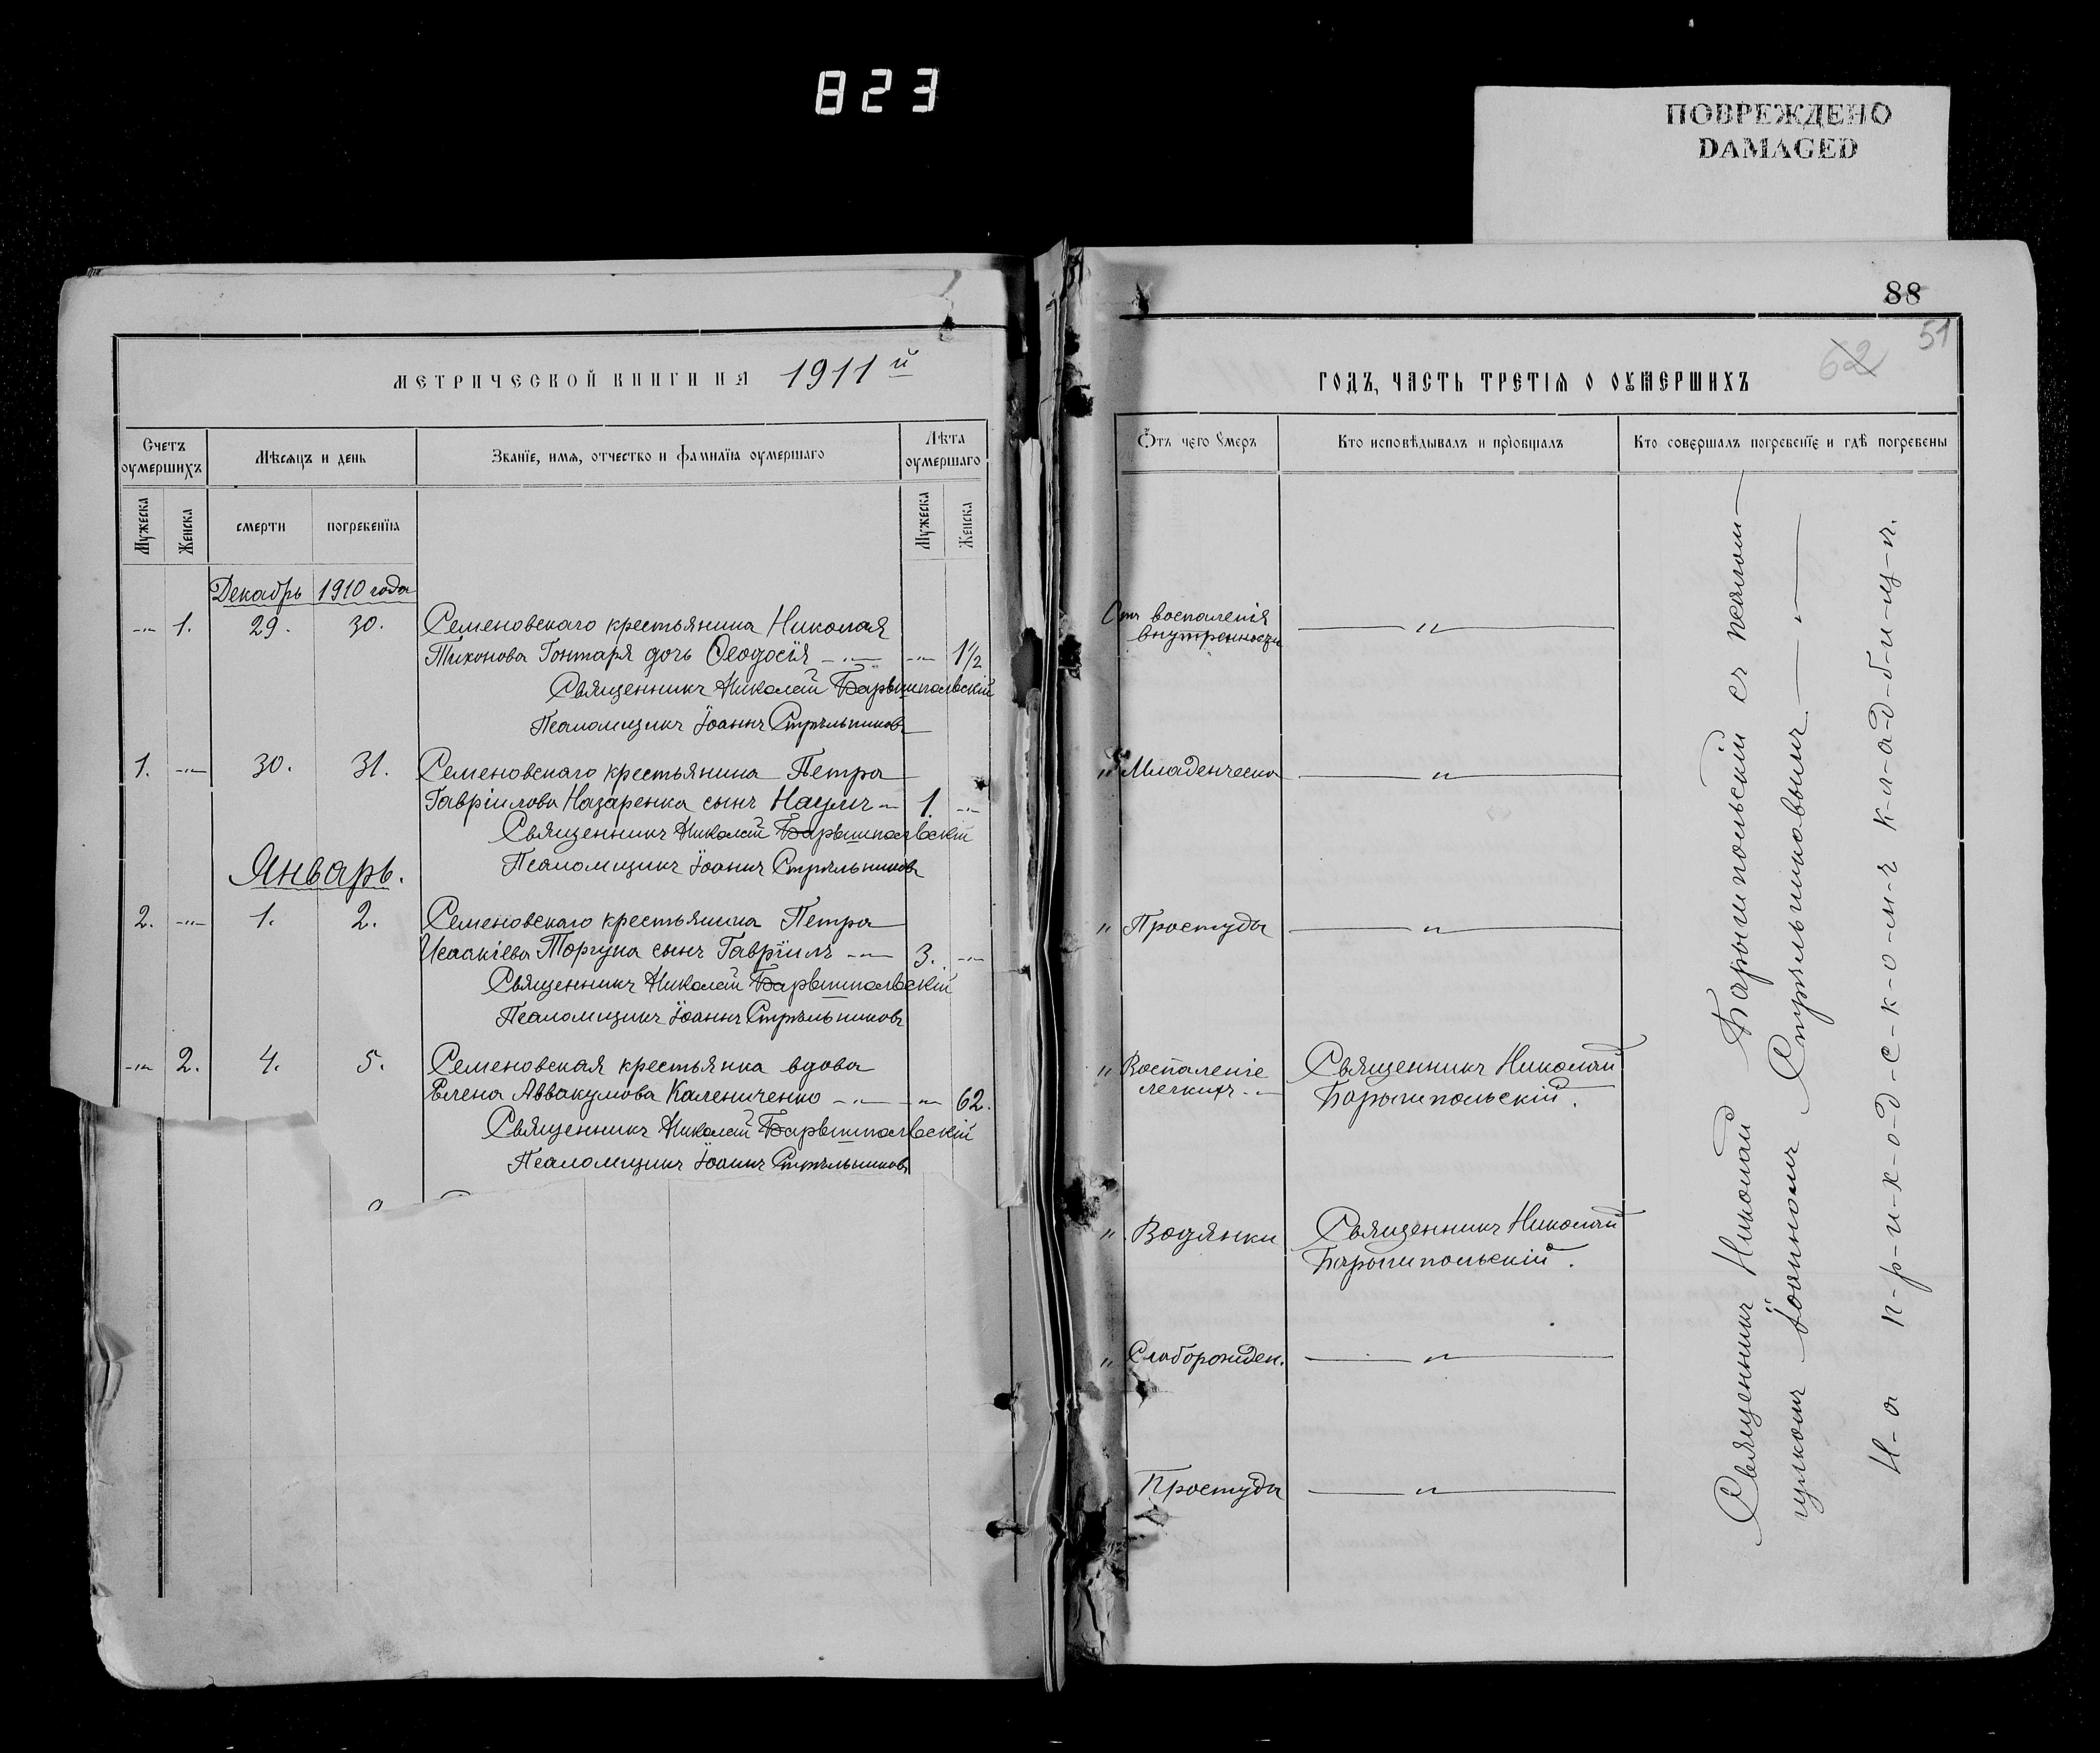 823
ПОВРЕЖДЕНО
DAMAGED
МЕТРИЧЕСКОЙ КНИГИ НА 1911й
Счетъ оумершихъ
Мѣсяцъ и день
Званїе, имя, отчество и фамилїя оумершаго
Лѣта оумершаго
Мужеска
Женска
смерти
погребенїя
Мужеска
Женска
Декабрь 1910 года
-"- 1. 29. 30. Семеновскаго крестьянина Николая
Тихонова Гонтаря дочь Ѳеодосія -"- -"- 1½
Священникъ Николай Барышпольскій
Псаломщикъ Іоаннъ Стрѣльниковъ
1. -"- 30. 31. Семеновскаго крестьянина Петра
Гавріилова Назаренка сынъ Наумъ - 1. -"-
Священникъ Николай Барышпольскій
Псаломщикъ Іоаннъ Стрѣльниковъ
Январь.
2. -"- 1. 2. Семеновскаго крестьянина Петра
Исаакіева Торгуна сынъ Гавріилъ -"- 3. -"-
Священникъ Николай Барышпольскій
Псаломщикъ Іоаннъ Стрѣльниковъ
-"- 2. 4. 5. Семеновская крестьянка вдова
Елена Аввакумова Калениченко -"- -"- 62.
Священникъ Николай Барышпольскій
Псаломщикъ Іоаннъ Стрѣльниковъ
88
51
62
ГОДЪ, ЧАСТЬ ТРЕТІЯ О ОУМЕРШИХЪ
Ѿтъ чего Умеръ
Кто исповѣдывалъ и прїобщалъ
Кто совершалъ погребенїе и гдѣ погребены
Отъ воспаленія -"-
внутренности
" Младенческа -"-
" Простуды -"-
" Воспаленіе Священникъ Николай
легкихъ -"- Барышпольскій.
" Водянки Священникъ Николай
Барышпольскій.
" Слаборожден. -"-
Простуды -"-
Священникъ Николай Барышпольскій съ псалом-
щикомъ Іоанномъ Стрѣльниковымъ -"-
Н-а п-р-и-х-о-д-с-к-о-м-ъ к-л-а-д-б-и-щ-ѣ.